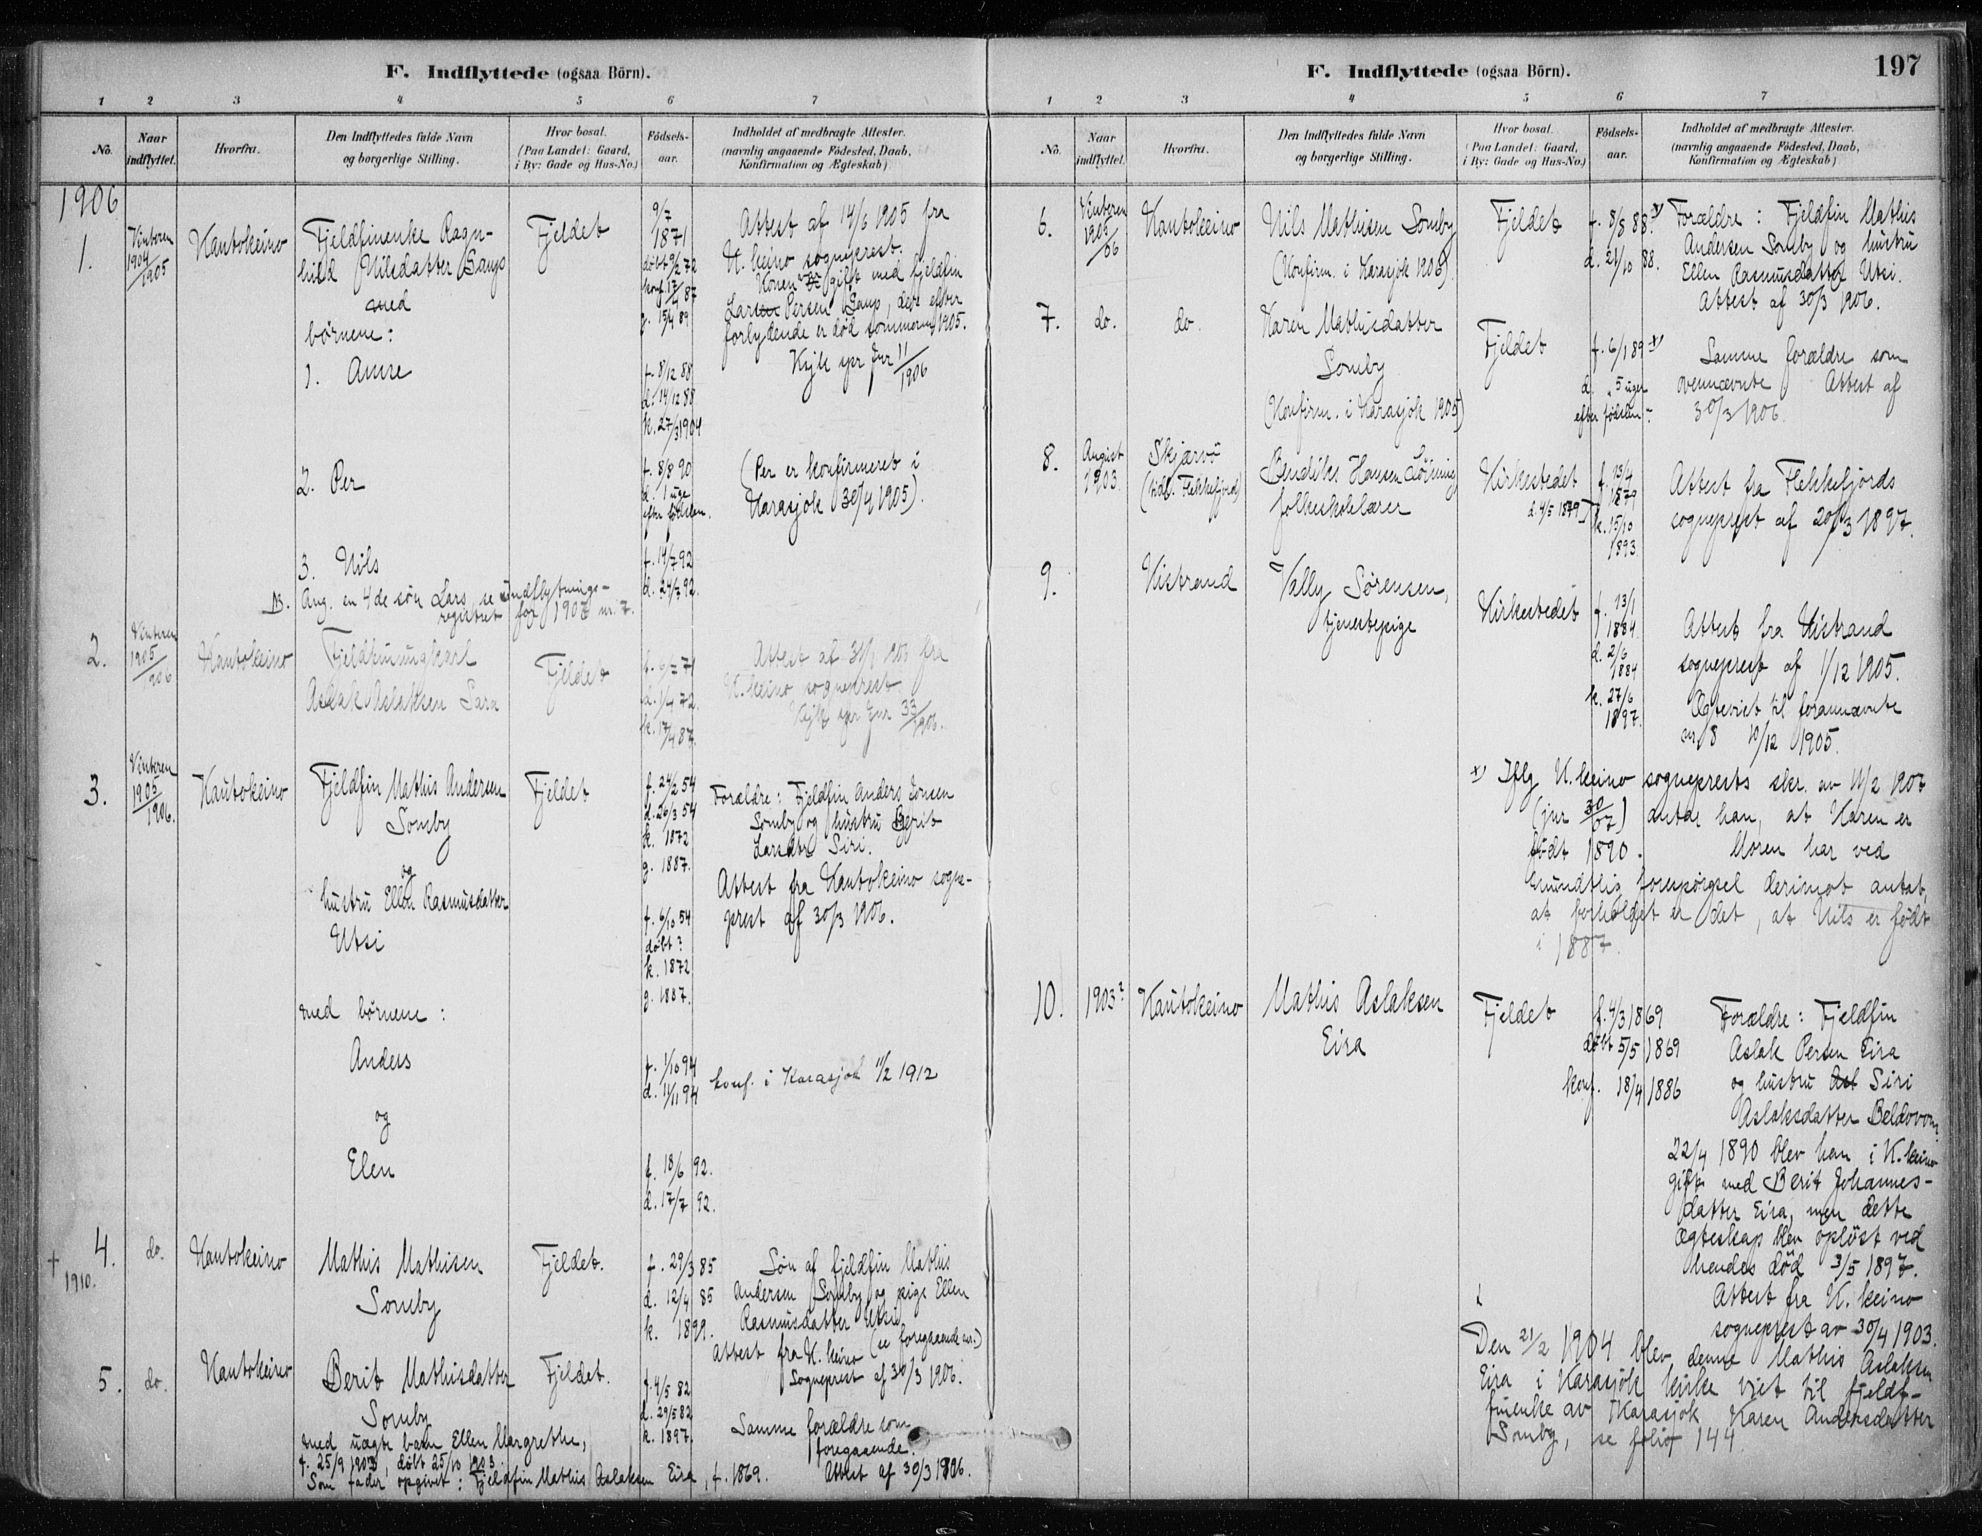 F. Indflyttede (ogsaa Börn).
1 2 3 4 5 6 7
No.
Naar indflyttet.
Hvorfra.
Den Indflyttedes fulde Navn
og borgerlige Stilling.
Hvor bosat.
(Paa Landet: Gaard,
i By: Gade og Hus-No.)
Födsels-
aar.
Indholdet af medbragte Attester.
(navnlig angaaende Födested, Daab,
Konfirmation og Ægteskab)
1906
1.
Vinteren
1904/1905
Kautokeino
Fjeldfinenke Ragn-
hild Nilsdatter
med
børnene:
1. Anne
2. Per
3. Nils
Fjeldet
9/7
1871
døbt 9/2 72
konf. 17/4 87
g. 15/4 89
f. 8/12 88
d. 14/12 88
k. 27/3 1904
f. 8/8 90
d. 1 uge
efter fødselen.
f. 14/7 92
d. 24/7 92.
Attest af 14/6 1905 fra
K.keino sogneprest.
Konen gift med fjeldfin
Persen , der efter
forlydende er død sommeren 1905.
11/1906
(Per er konfirmeret i
Karasjok 30/4 1905).
Ang. en 4de søn Lars, se indflytnings-
registret for 1907 nr. 7.
2.
Vinteren
1905/1906
Kautokeino
Aslak Aslaksen Sara
Fjeldet
f. 6/7 71
d. 1/4 72.
k. 17/4 87.
Attest af 1903 fra
K.keino sogneprest.
33/1906.
3.
Vinteren
1905/1906.
Kautokeino
Fjeldfin Mathis Andersen
Somby
og
hustru Ellen Rasmusdatter
Utsi
med børnene:
Anders
og
Elen
Fjeldet
f. 24/2 54
d. 26/3 54
k. 1872
g. 1887.
f. 6/10 54
døbt?
k. 1872
g. 1887.
f. 1/10 94
d. 11/11 94
f. 18/6 92.
d. 17/7 92.
Forældre: Fjeldfin Anders Jonsen
Somby og hustru Berit
Larsdtr Siri.
Attest fra Kautokeino sogne-
prest af 30/3 1906.
konf. i Karasjok 11/2 1912
† 1910.
4.
do.
Kautokeino
Mathis Mathisen
Somby
Fjeldet.
f. 29/3 85
d. 12/4 85
k. 1899.
Søn af fjeldfin Mathis
Andersen Somby og pige Ellen
Rasmusdatter Utsi
(se foregaaende nr.)
Attest fra K.keino
Sogneprest af 30/3 1906.
5.
do.
Kautokeino
Berit Mathisdatter
Somby
med uægte barn Ellen Margrethe,
f. 25/9 1903, døbt 25/10 1903.
Som fader opgivet: Fjeldfin Mathis Aslaksen Eira, f. 1869.
Fjeldet.
f. 4/5 82
d. 29/5 82
k. 1897.
Samme forældre som
foregaaende.
Attest af 30/3 1906.
F. Indflyttede (ogsaa Börn).
197
1 2 3 4 5 6 7
No.
Naar indflyttet.
Hvorfra.
Den Indflyttedes fulde Navn
og borgerlige Stilling.
Hvor bosat.
(Paa Landet: Gaard,
i By: Gade og Hus-No.)
Födsels-
aar.
Indholdet af medbragte Attester.
(navnlig angaaende Födested, Daab,
Konfirmation og Ægteskab)
6.
Vinteren
1905/06
Kautokeino
Nils Mathisen Somby
(Konfirm. i Karasjok 1906)
Fjeldet
f. 8/8 88. x)
d. 21/10 88.
Forældre: Fjeldfin Mathis
Andersen Somby og hustru
Ellen Rasmusdatter Utsi.
Attest af 30/3 1906.
7.
do.
do.
Karen Mathisdatter
Somby
(Konfirm. i Karasjok 1905)
Fjeldet
f. 6/1 89 x)
d. 5 uger
efter fødselen
Samme forældre som
ovennævnte Attest af
30/3 1906.
8.
August
1903.
Skjærvö
(tidl. Flekkefjord)
Bendiks Hansen
folkeskolelærer
Kirkestedet
d. 4/5 1879
f. 13/4
1879
k. 15/10
1893
Attest fra Flekkefjords
sogneprest af 20/3 1897.
9.
Kistrand
Vally Sørensen,
tjenestepige
Kirkestedet
f. 13/1
1884
d. 2/6
1884
k. 27/6
1897.
Attest fra Kistrand
sogneprest af 1/12 1905.
Ægteviet til forannævnte
nr. 8 10/12 1905.
x) Iflg. K.keino sogneprests skr. av 11/2 1907
(jnr 30/07) antar han, at Karen er
født 1890. Moren har ved
mundtlig forespørgsel derimot antat,
at forholdet er det, at Nils er født
i 1887.
10.
1903?
Kautokeino
Mathis Aslaksen
Eira
Fjeldet
f. 4/3 1869
døbt 5/5 1869
konf. 18/4 1886
Forældre: Fjeldfin
Aslak Persen Eira
og hustru Siri
Aslaksdatter
22/4 1890 blev han i K.keino
gift med Berit Johannes-
datter Eira, men dette
Ægteskap blev opløst ved
hendes död 3/5 1897.
Attest fra K.keino
sogneprest av 30/4 1903.
Den 21/2 1904 blev denne Mathis Aslaksen
Eira i Karasjok kirke viet til fjeld-
finenke av Karasjok Karen Andersdatter
Somby, se folio 144